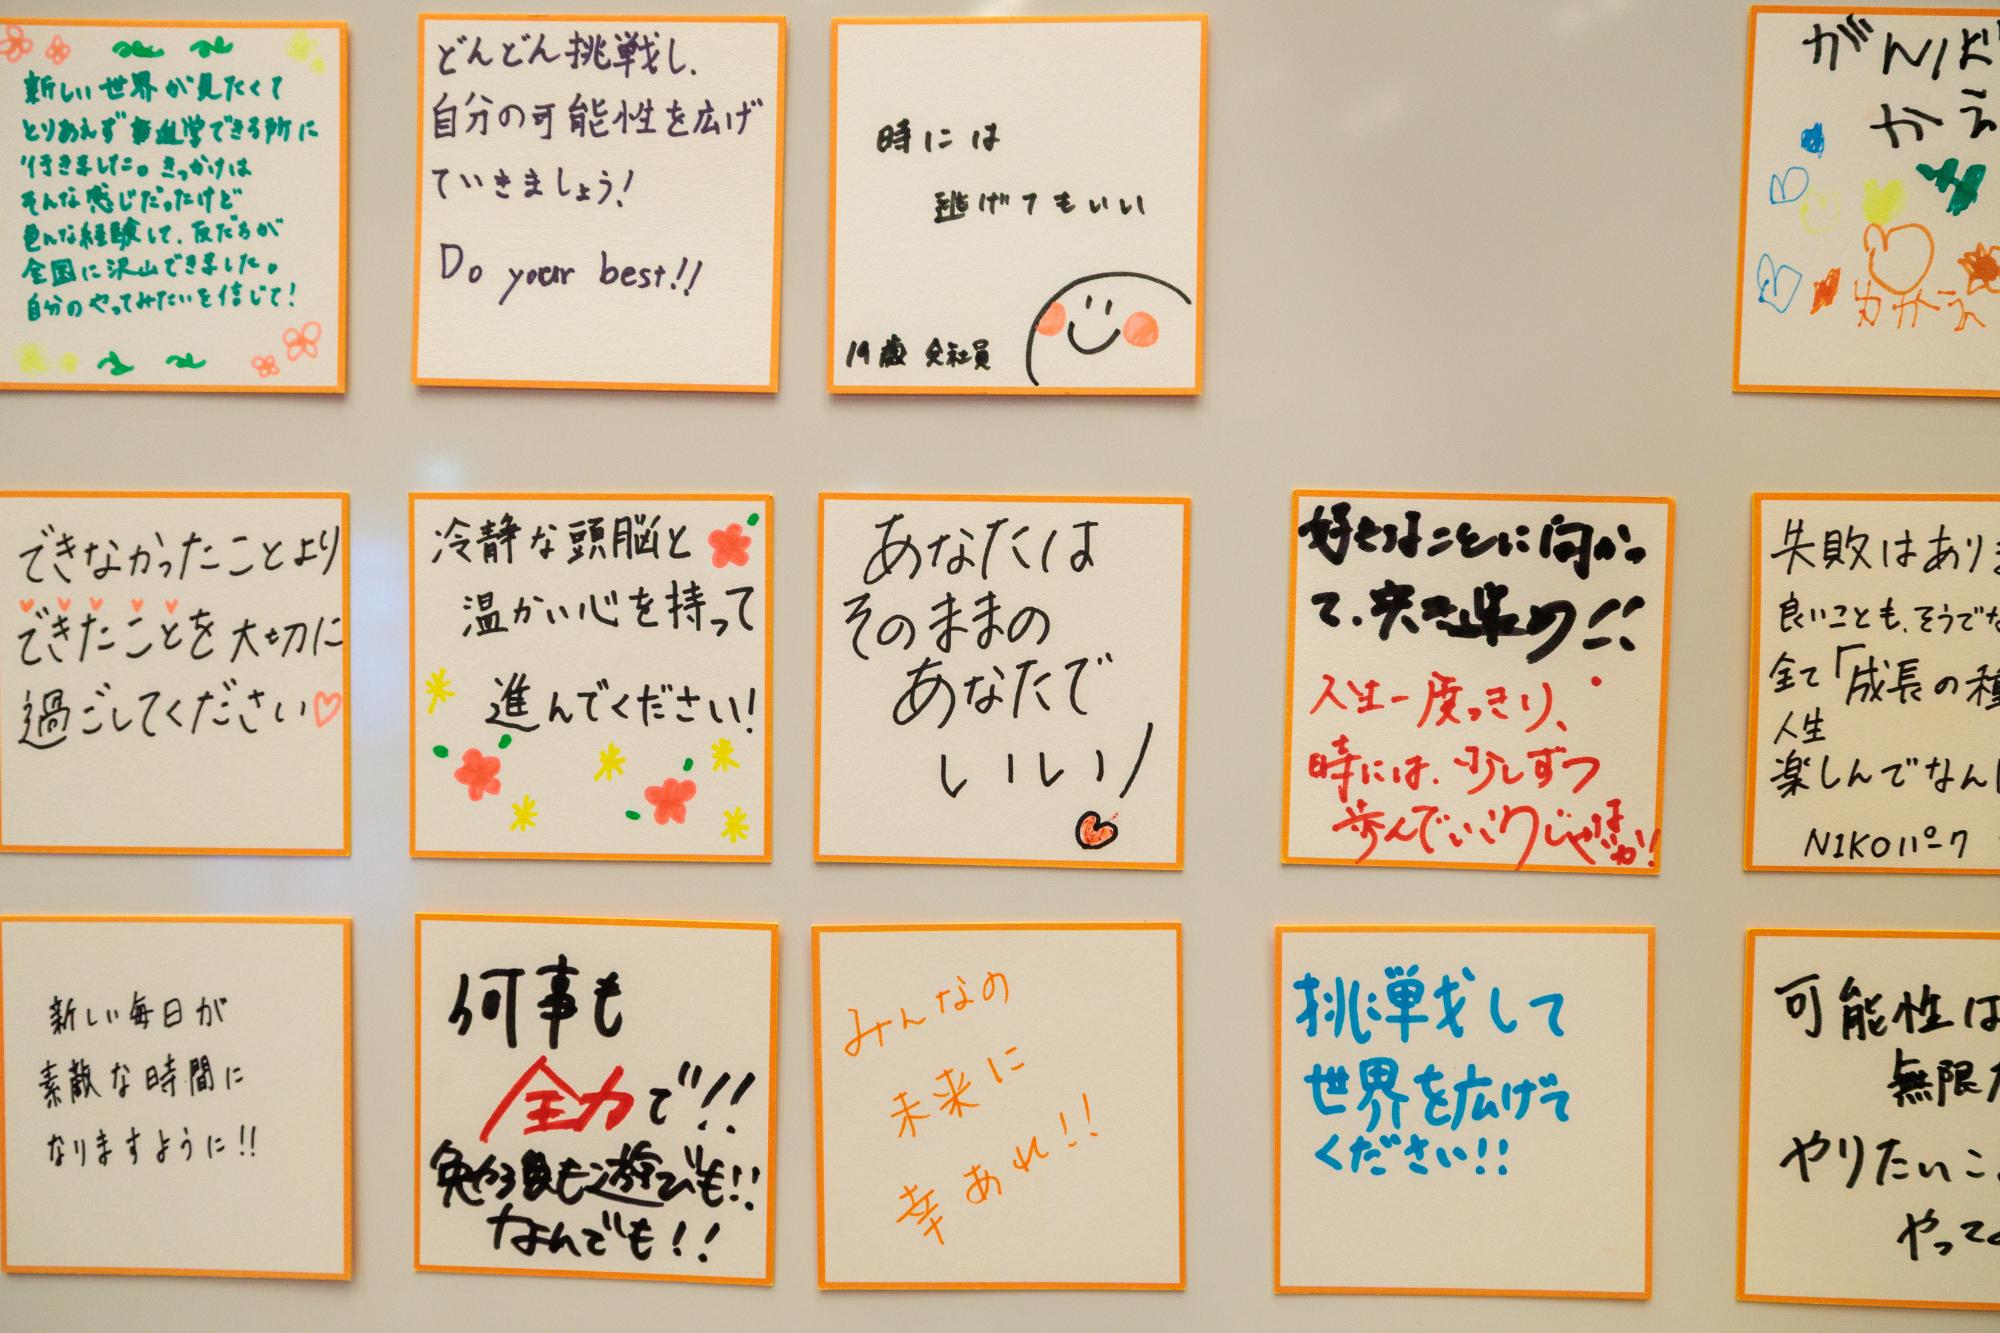 新しい世界が見たくて
とりあえず通学できる所に
行きました。きっかけは
そんな感じだったけど
色んな経験して、友だちが
全国に沢山できました。
自分のやってみたいを信じて!
どんどん挑戦し、
自分の可能性を広げ
ていきましょう!
Do your best!!
時には
逃げてもいい
19歳 会社員
がんば
かえ
わかえ
できなかったことより
できたことを大切に
過ごしてください
冷静な頭脳と
温かい心を持って
進んでください!
あなたは
そのままの
あなたで
いいい!
好きなことに向かっ
て、突き進め!!
人生一度っきり、
時には、少しずつ
歩んでいいじゃ
失敗はありま
良いことも、そうでな
全て「成長の種
人生
楽しんでなん
NIKOパーク
新しい毎日が
素敵な時間に
なりますように!!
何事も
全力で!!
も遊びも!!
なんでも!!
みんなの
未来に
幸あれ!!
挑戦して
世界を広げて
ください!!
可能性は
無限
やりたいこ
やって